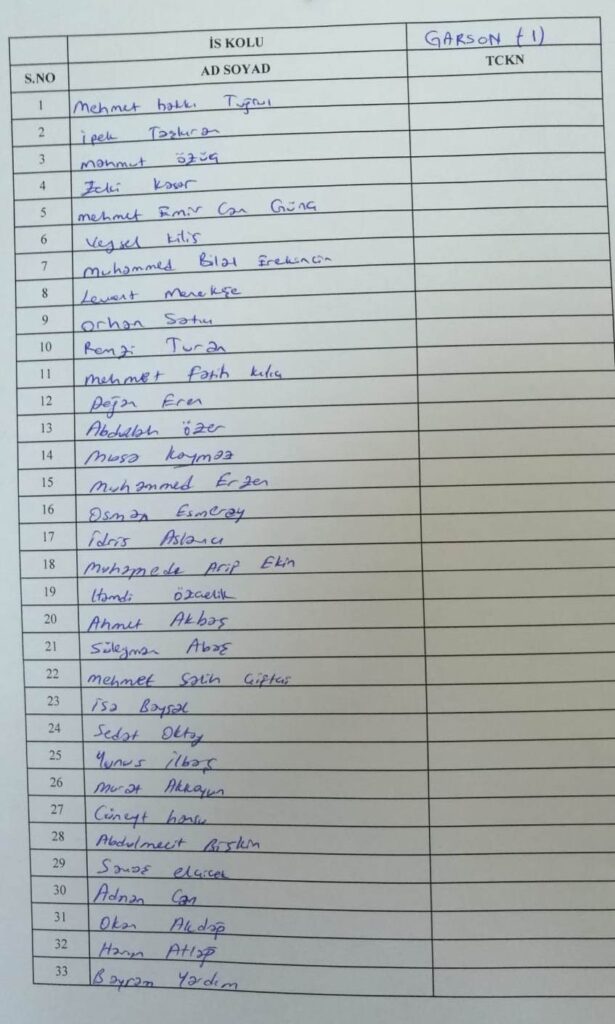 İS KOLU GARSON (1)
S.NO AD SOYAD TCKN
1 Mehmet hakkı Tuğrul
2 ipek Taşkıran
3 mahmut özüç
4 Zeki Kasar
5 mehmet Emir Can Günç
6 Veysel kiliş
7 Muhammed Bilal Erekincin
8 Levent Menekşe
9 Orhan Satıı
10 Remzi Turan
11 mehmet fatih kılıç
12 Doğan Eren
13 Abdullah özer
14 Musa Kaymaz
15 Muhammed Erzen
16 Osman Esmeray
17 idris Aslancı
18 Muhamede Arif Ekin
19 Hamdi özcelik
20 Ahmet Akbaş
21 Süleyman Abaş
22 mehmet Salih Çiftçi
23 isa Baysal
24 Sedat Oktay
25 Yunus ilbaş
26 Murat Akkoyun
27 Cüneyt
28 Abdulmecit Bişkin
29 Savaş elçiçek
30 Adnan Can
31 Okan Akdağ
32 Harun Atlağ
33 Bayram Yardım